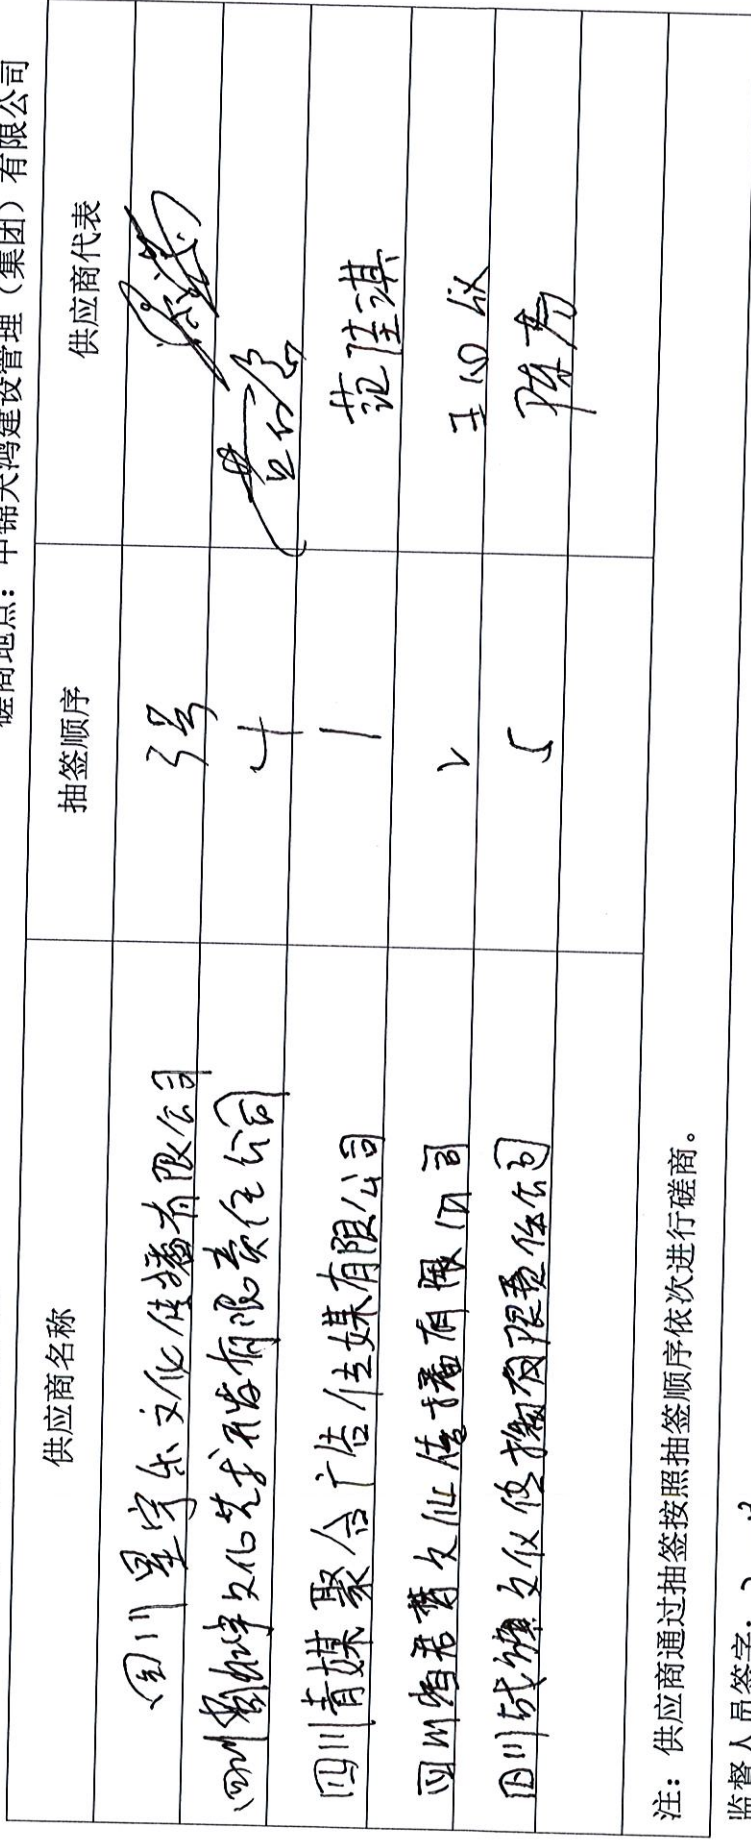 磋商地点：中锦天鸿建设管理（集团）有限公司
供应商名称 抽签顺序 供应商代表
四川星宇乐文化传播有限公司 3号
四川 文化艺术开发有限责任公司 4
四川青媒聚合广告传媒有限公司 1 范佳淇
四川 文化传播有限公司 2 王
四川 文化传播有限责任公司 5 陈
注：供应商通过抽签按照抽签顺序依次进行磋商。
监督人员签字：